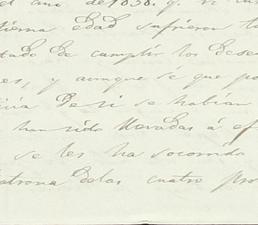 el año de 1838. y. si
tierna edad sufrieron
tado de cumplir los dese
es, y aunque sé que po
de si se habían
han sido llevadas á ef
se les ha socorrido
atrona de las cuatro pro